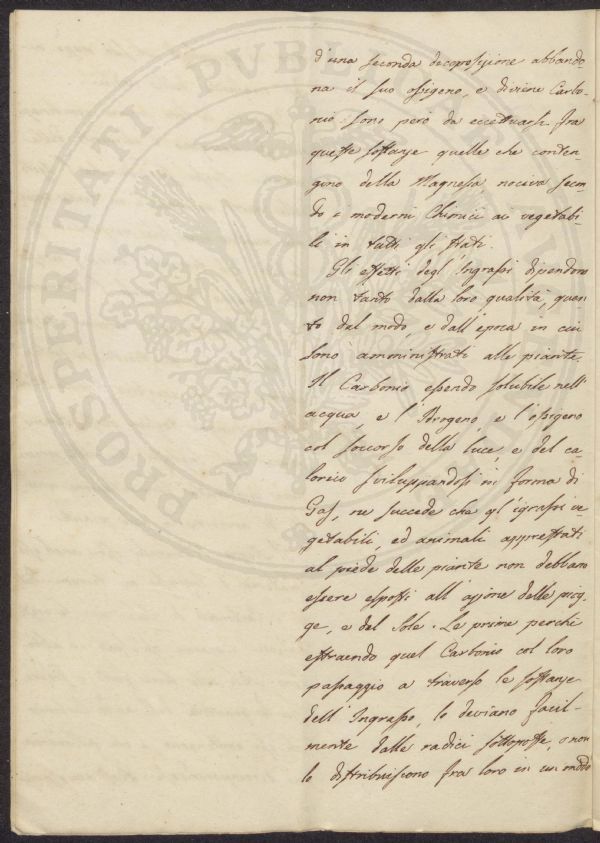 d'una seconda decoposizione abbando-
na il suo ossigeno, e diviene Carbo-
nio: sono però da eccettuarsi fra
queste sostanze quelle che conten-
gino della Magnesia, nociva secon-
do i moderni Chimici ai vegetabi-
li in tutti gli stati.
Gli effetti degl'Ingrassi dipendono
non tanto dalla loro qualità, quan-
to dal modo, e dall'epoca in cui
sono amministrati alle piante.
Il Carbonio essendo solubile nell'
acqua, e l'Idrogeno, e l'ossigeno
col soccorso della luce, e del ca-
lorico sviluppandosi in forma di
Gas, ne succede che gl'igrassi ve-
getabili, ed animali apprestati
al piede delle piante non debbano
essere esposti all'azione delle piog-
ge, e del Sole. Le prime perchè
estraendo quel Carbonio col loro
passaggio a traverso le sostanze
dell'Ingrasso, lo deviano facil-
mente dalle radici sottoposte, o non
lo distribuiscono fra loro in un modo
PROSPERITATI PVBLI